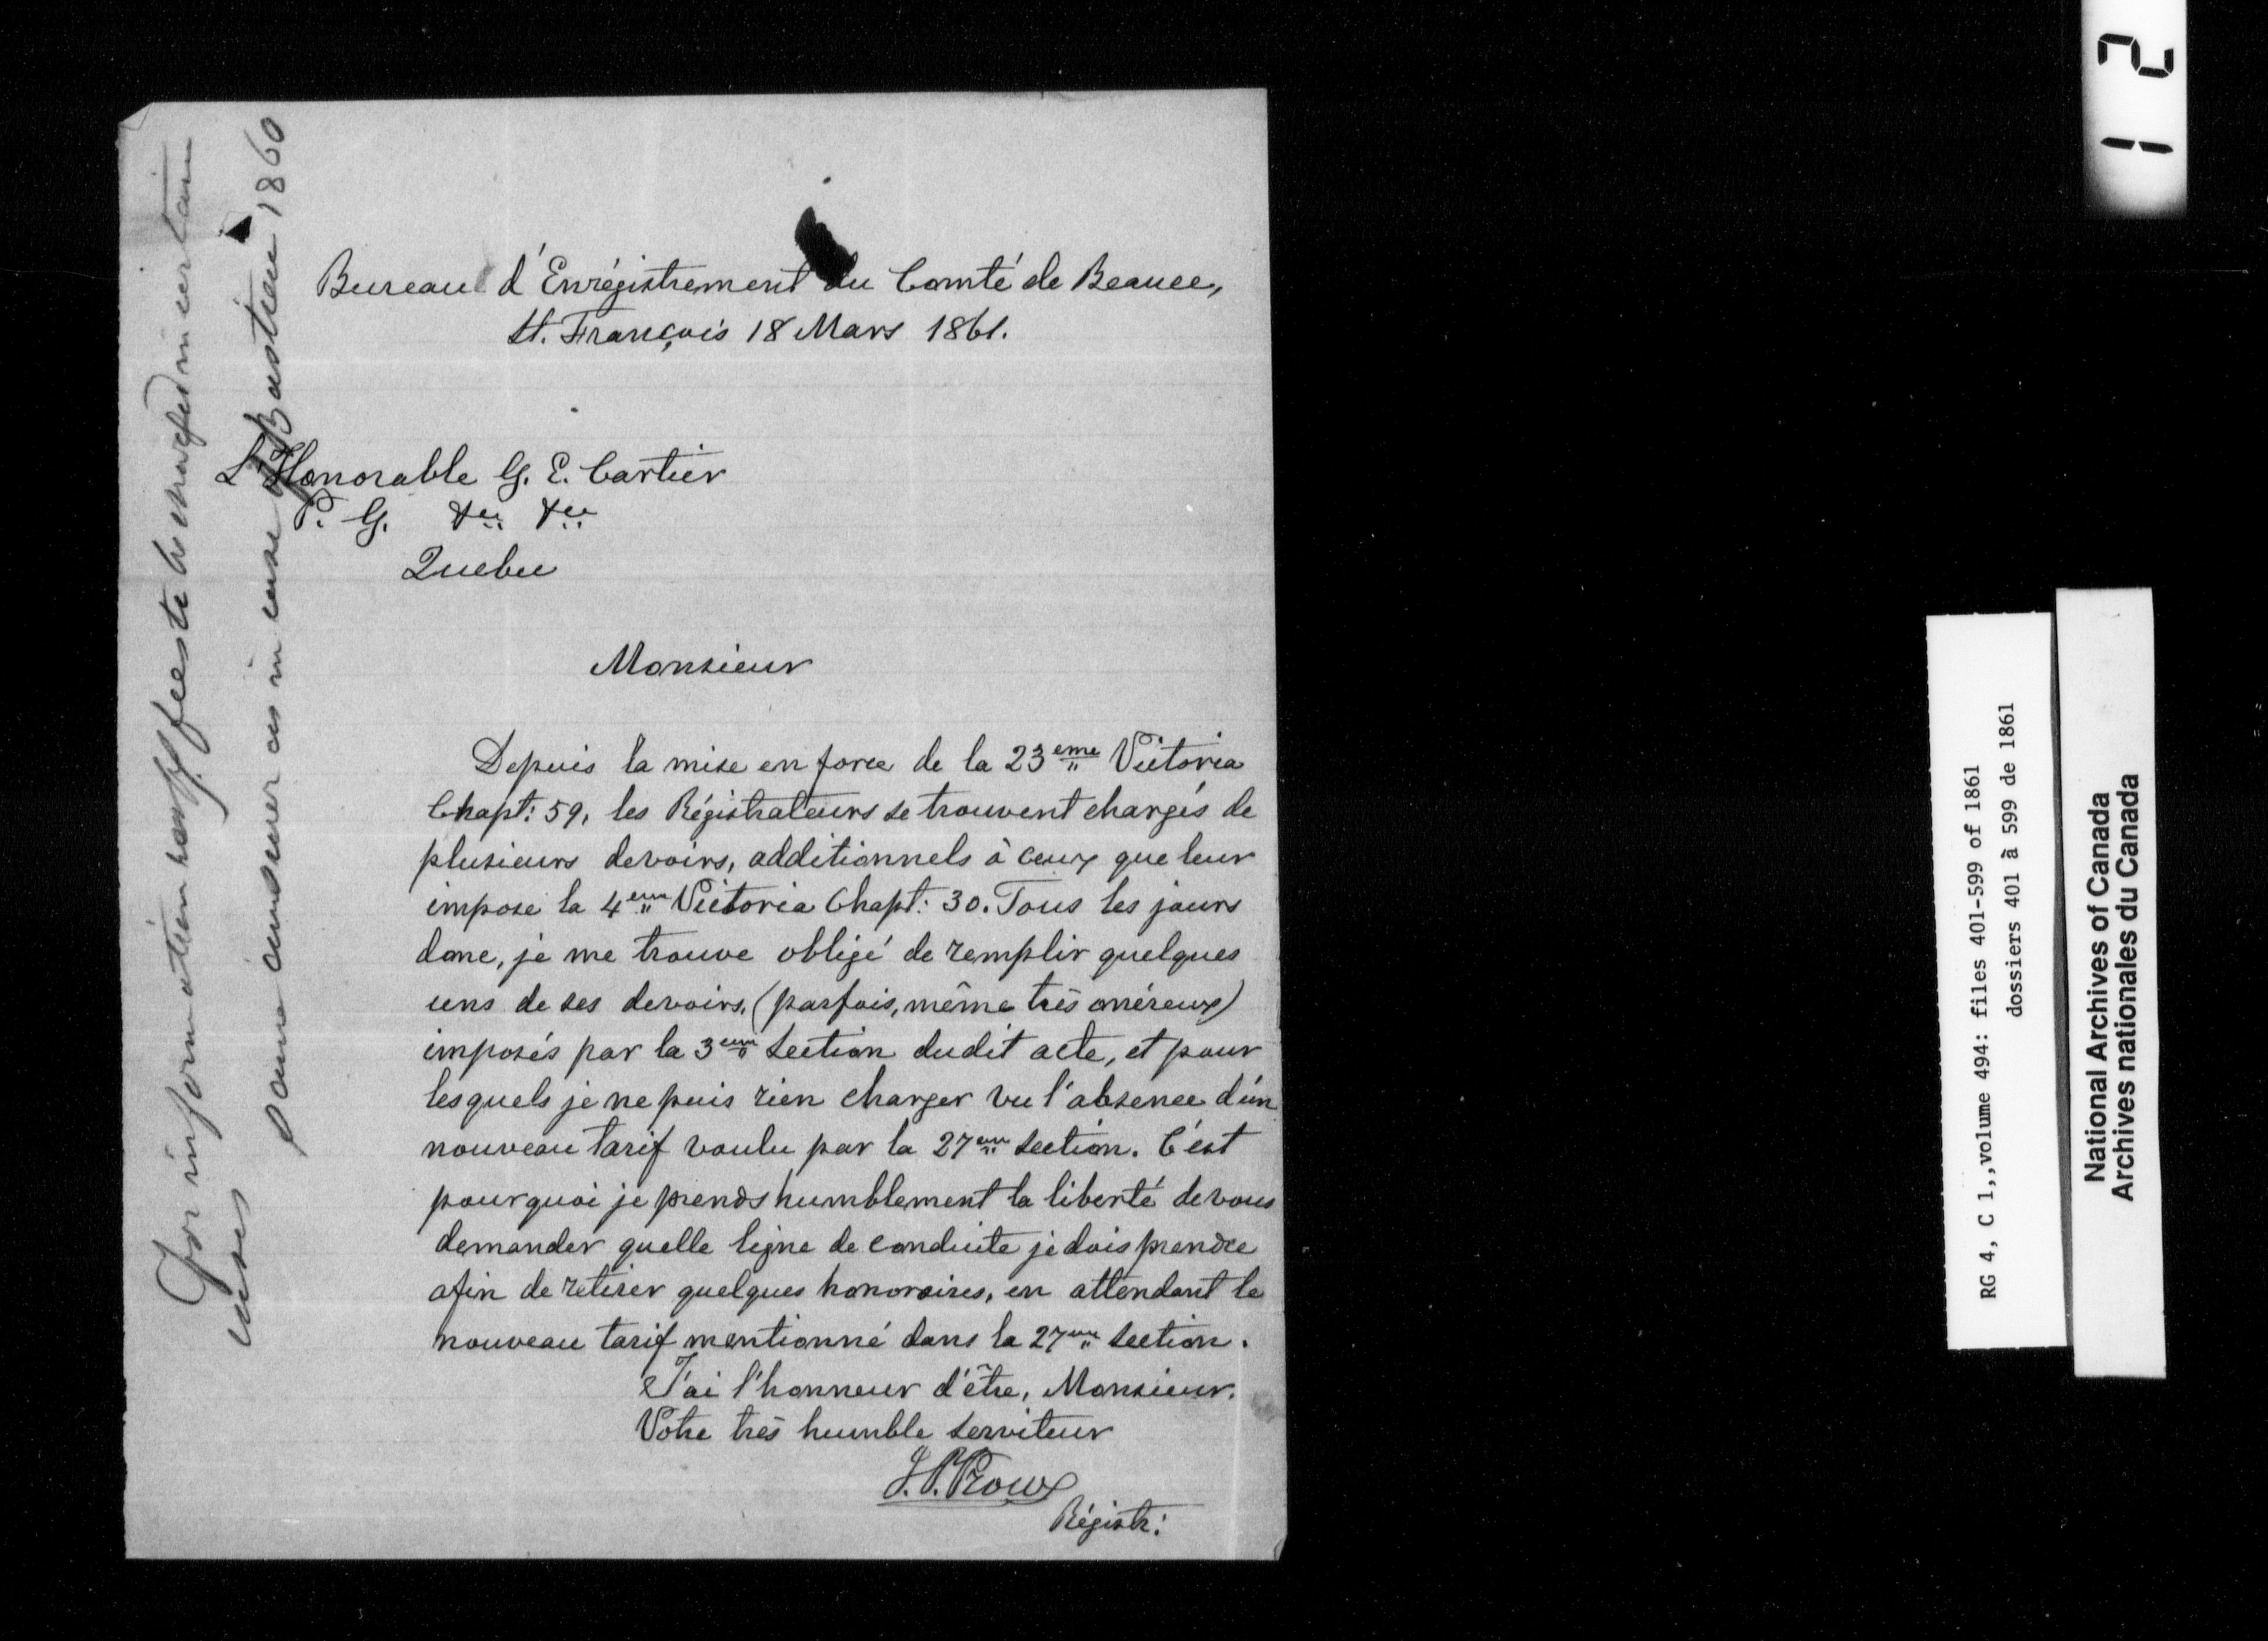 Bureau d'Enrégistrement du Comté de Beauce,
St. François 18 Mars 1861.
L'Honorable G. E. Cartier
P. G. &ce &ce
Quebec
Monsieur
Depuis la mise en force de la 23eme Victoria
Chapt: 59, les Régistrateurs se trouvent chargés de
plusieurs devoirs, additionnels à ceux que leur
impose la 4eme Victoria Chapt: 30. Tous les jours
donc, je me trouve obligé de remplir quelques
uns de ses devoirs, (parfois, même très onéreux)
imposés par la 3eme Section dudit acte, et pour
lesquels je ne puis rien charger vu l'absence d'un
nouveau tarif voulu par la 27eme Section. C'est
pourquoi je prends humblement la liberté de vous
demander quelle ligne de conduite je dois prendre
afin de retirer quelques honoraires, en attendant le
nouveau tarif mentionné dans la 27eme Section.
J'ai l'honneur d'être, Monsieur.
Votre très humble serviteur
J. P. Proulx
Régistr:
For information fees to be charged in certain
cases
same answer as in case 1860
12
RG 4, C 1,,volume 494: files 401-599 of 1861
dossiers 401 à 599 de 1861
National Archives of Canada
Archives nationales du Canada